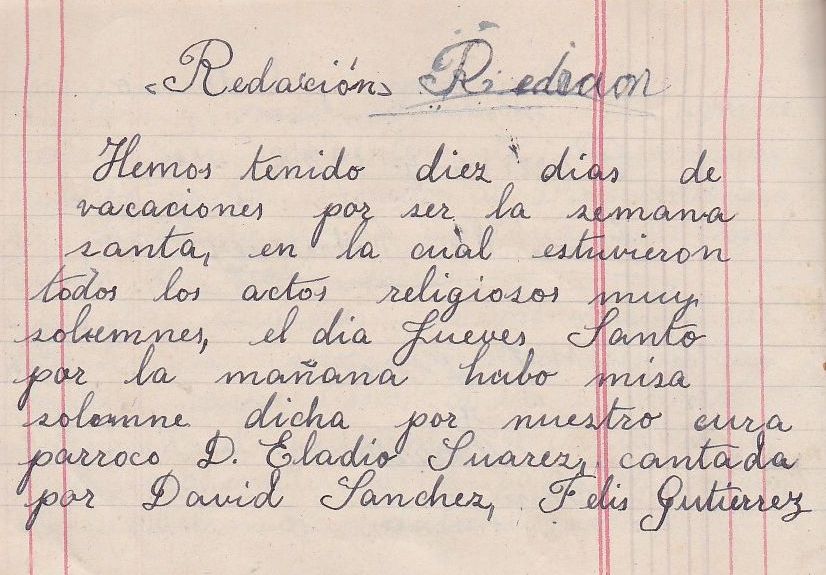 «Redacción» Redacion
Hemos tenido diez dias de
vacaciones por ser la semana
santa, en la cual estuvieron
todos los actos religiosos muy
solemnes, el dia Jueves Santo
por la mañana hubo misa
solemne dicha por nuestro cura
parroco D. Eladio Suarez, cantada
por David Sanchez, Felis Gutierrez